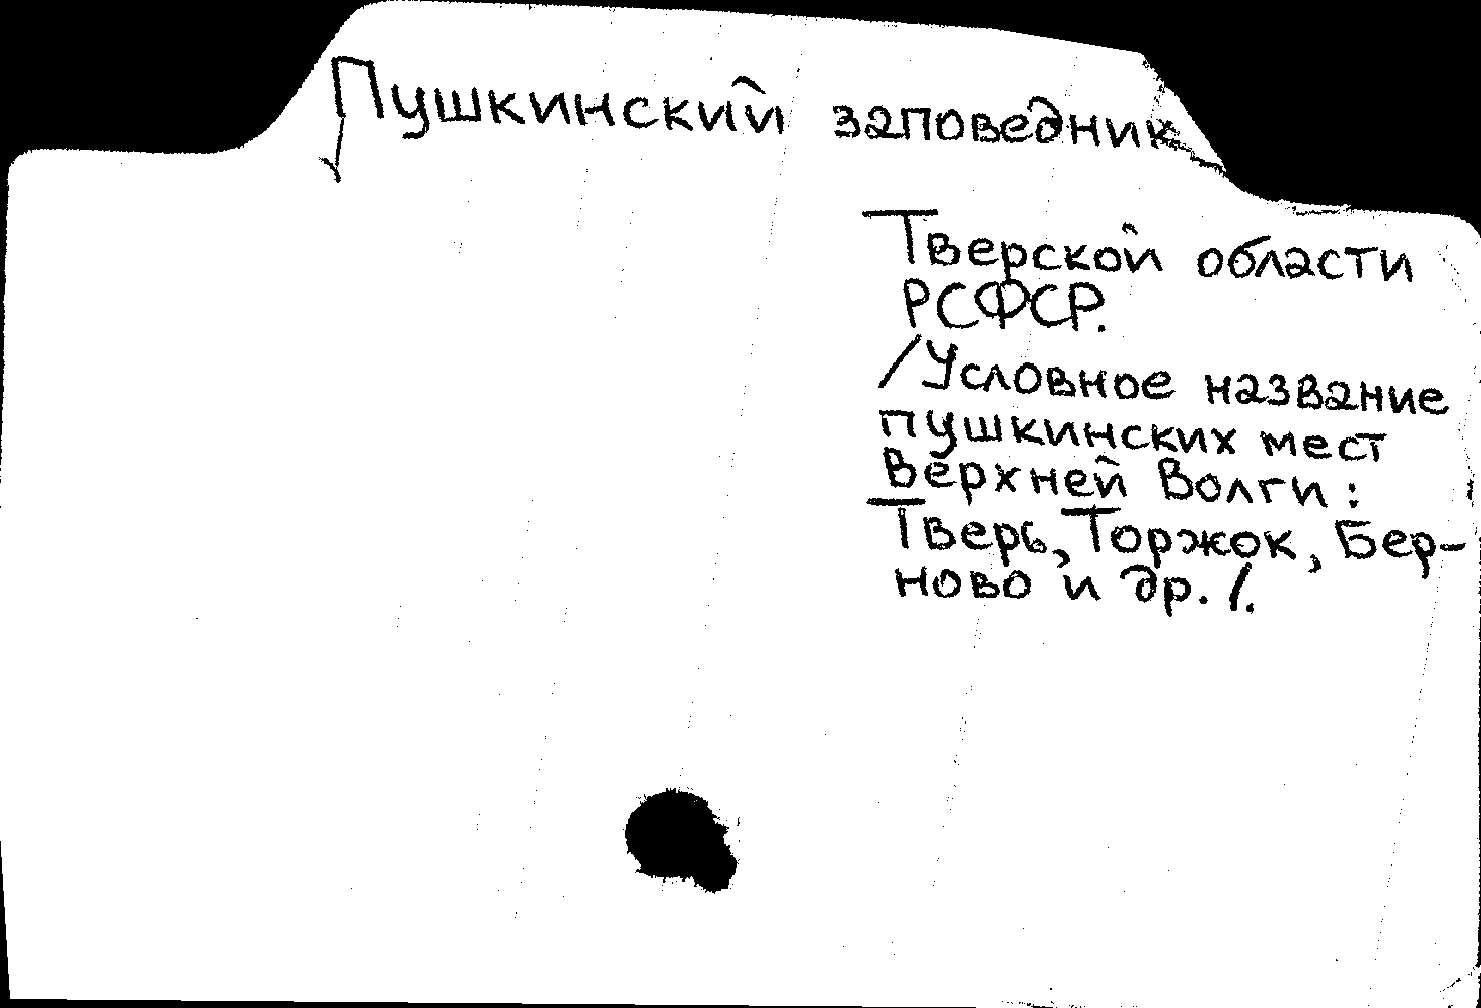 Пушкинский заповедник
Тверской области
РСФСР.
/Условное название
пушкинских мест
Верхней Волги:
Тверь, Торжок, Бер-
ново и др./.